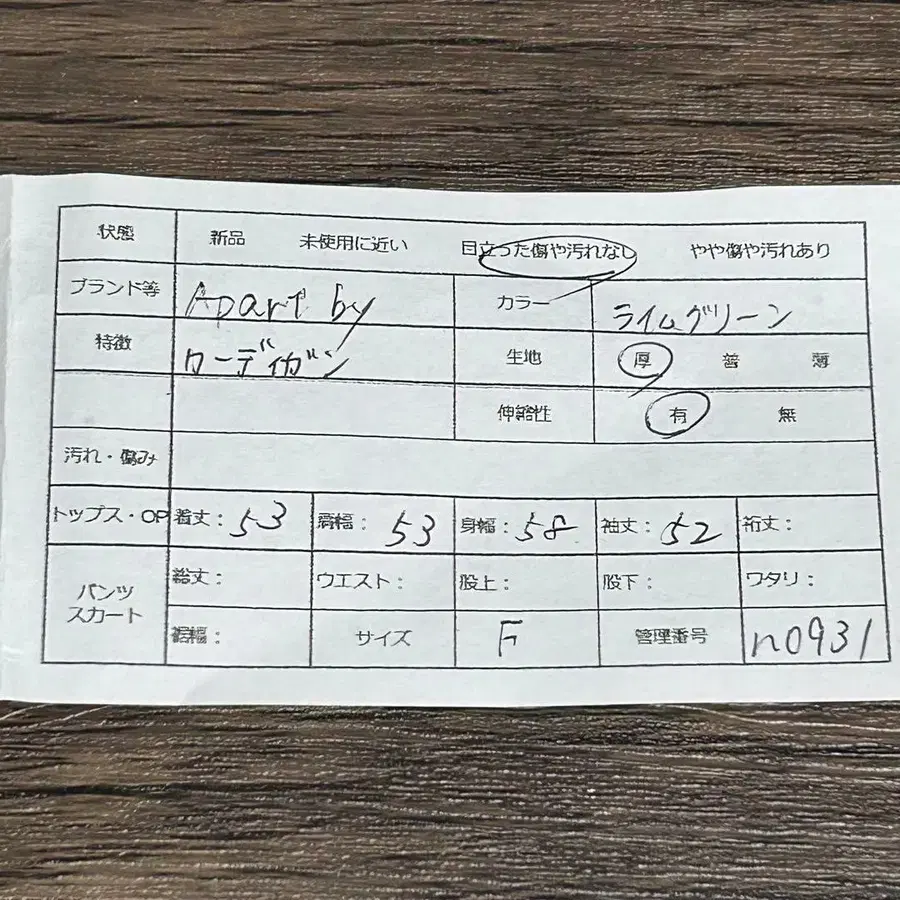 状態 新品 未使用に近い 目立った傷や汚れなし やや傷や汚れあり
ブランド等 Apart by カラー ライムグリーン
特徴 カーディガン 生地 厚 普 薄
伸縮性 有 無
汚れ・傷み
トップス・OP 着丈: 53 肩幅: 53 身幅: 58 袖丈: 52 裄丈:
パンツ スカート 総丈: ウエスト: 股上: 股下: ワタリ:
裾幅: サイズ F 管理番号 n0931